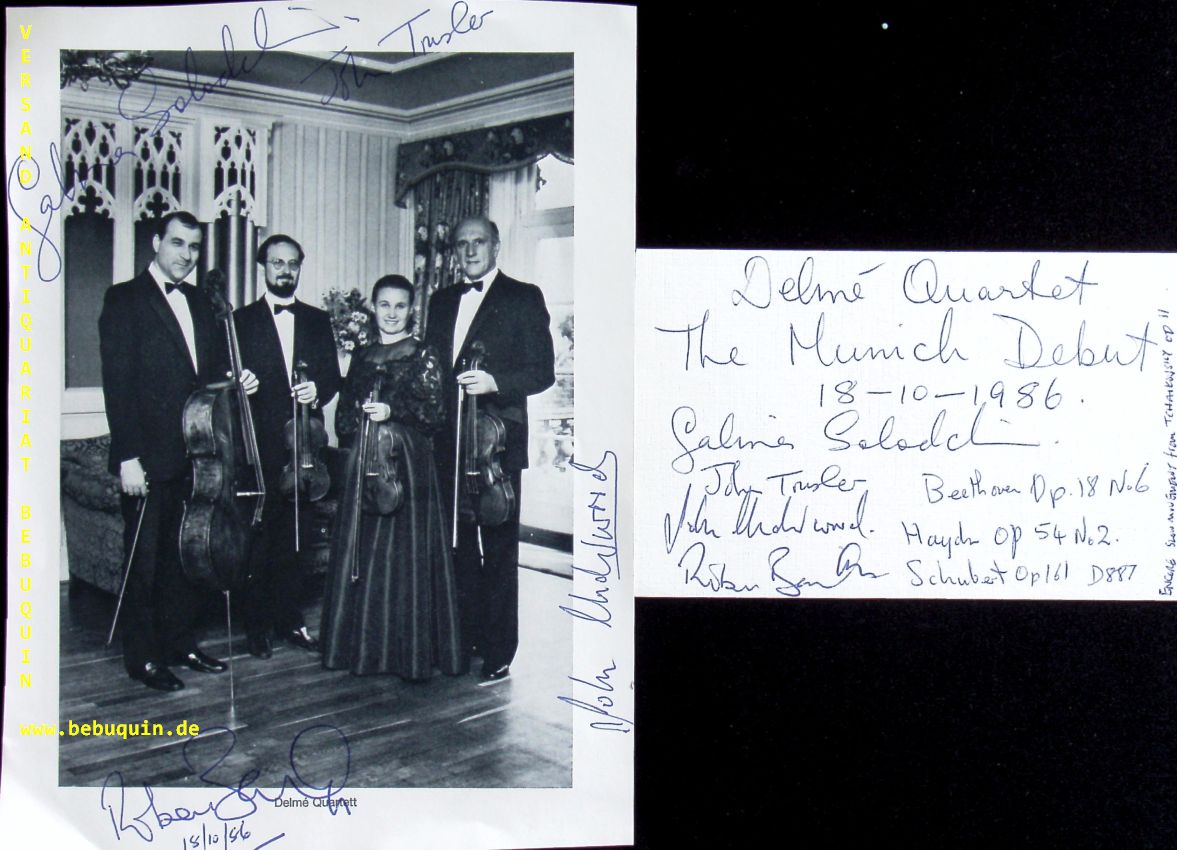 VERSAND ANTIQUARIAT BEBUQUIN
www.bebuquin.de
Galina Solodchin
John Trusler
John Underwood
Delmé Quartett
18/10/86
Delmé Quartet
The Munich Debut
18-10-1986.
Galina Solodchin.
John Trusler
John Underwood.
Beethoven Op. 18 No 6
Haydn Op 54 No 2.
Schubert Op 161 D887
ENCORE SLOW MOVEMENT from TCHAIKOVSKY OP 11